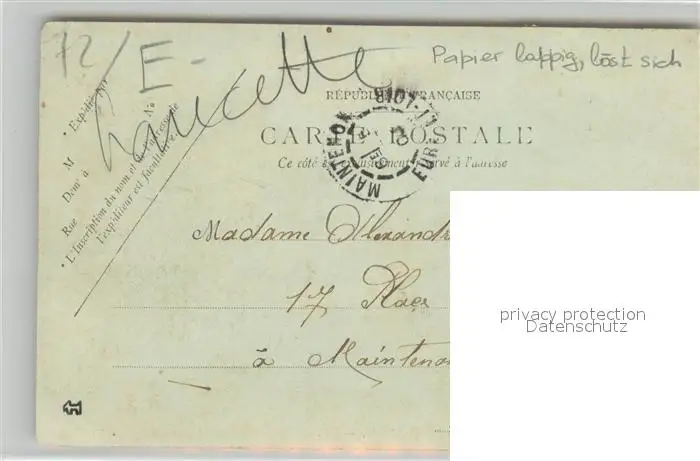 72/E-
Papier lappig, löst sich
RÉPUBLIQUE FRANÇAISE
CARTE POSTALE
Ce côté est exclusivement réservé à l'adresse
Expéditeur
M
Dem' à
Rue
No
L'Inscription du nom et de l'adresse de
l'expéditeur est facultative.
MAINTENON
EURE-ET-LOIR
Madame Alexandr
17 Place
à Maintenon
privacy protection
Datenschutz